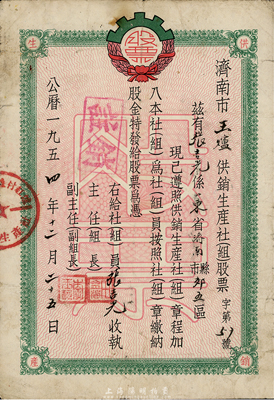 生
供
銷
產
濟南市王爐供銷生產社組股票字第57號
茲有張立元係山東省濟南市縣郊五區
現已遵照供銷生產社(組)章程加
入本社(組)爲社(組)員按照社(組)章繳納
股金特發給股票爲憑
右給社(組)員張立元收執
主任組長
副主任(副組長)
公曆一九五四年十二月二十五日
註銷